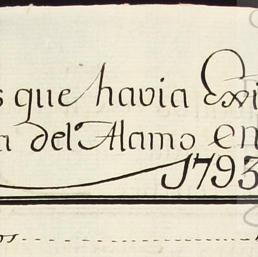 s que havia Exi
a del Alamo en
1793